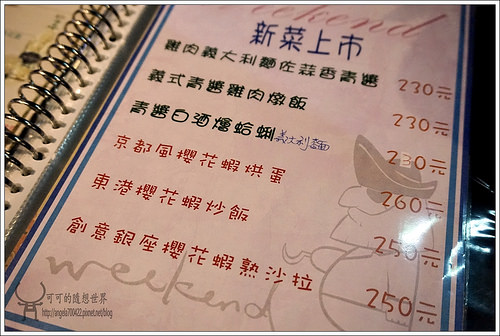 weekend
新菜上市
雞肉義大利麵佐蒜香青醬 230元
義式青醬雞肉燉飯 230元
青醬白酒燴蛤蜊義大利麵 230元
京都風櫻花蝦烘蛋 260元
東港櫻花蝦炒飯 250元
創意銀座櫻花蝦熱沙拉 250元
weekend
可可的隨想世界
http://angela700422.pixnet.net/blog